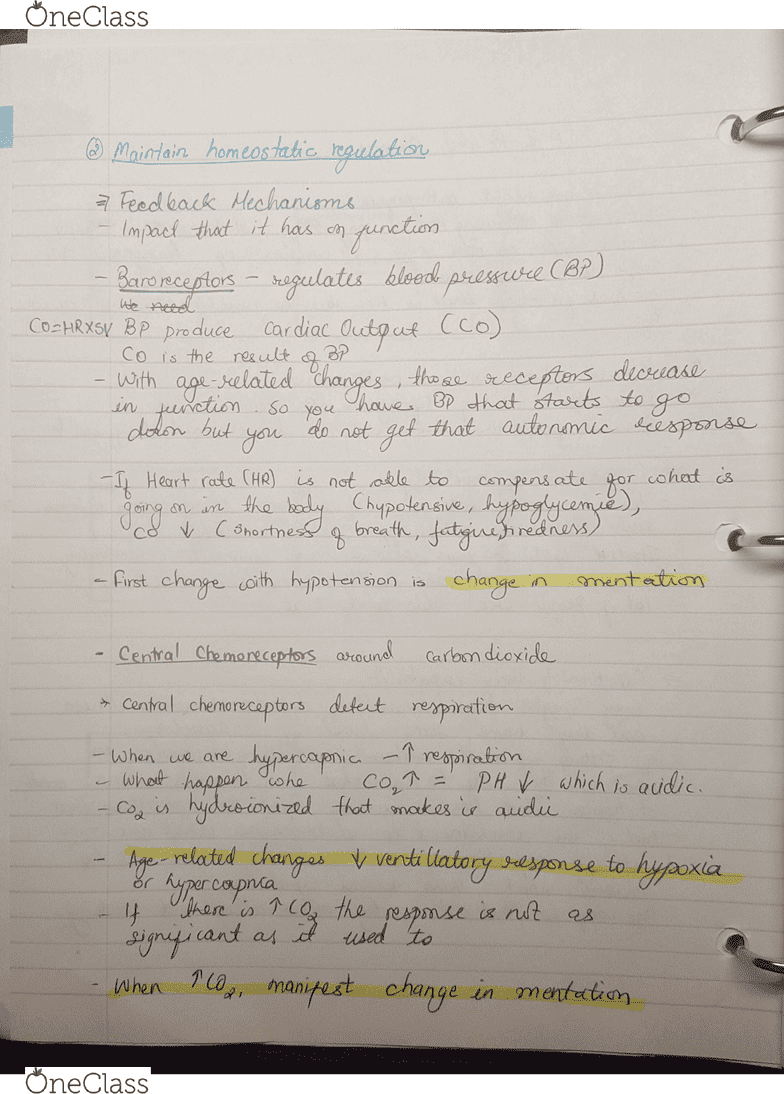 OneClass
② Maintain homeostatic regulation
⇒ Feedback Mechanisms
- Impact that it has on function
- Baroreceptors - regulates blood pressure (BP)
We need
CO=HRXSV BP produce cardiac Output (CO)
CO is the result of BP
- With age-related changes, those receptors decrease
in function. so you have BP that starts to go
down but you do not get that autonomic response
- If Heart rate (HR) is not able to compensate for what is
going on in the body (hypotensive, hypoglycemie),
CO ↓ (shortness of breath, fatigue, tiredness)
- First change with hypotension is change in mentation
- Central Chemoreceptors around carbondioxide
* Central chemoreceptors detect respiration
- When we are hypercapnic - ↑ respiration
- What happen whe CO₂↑ = PH ↓ which is acidic.
- CO₂ is hydroionized that makes it acidic
- Age-related changes ↓ ventillatory response to hypoxia
or hypercapnca
- If there is ↑CO₂ the response is not as
significant as it used to
- When ↑CO₂, manifest change in mentation
OneClass